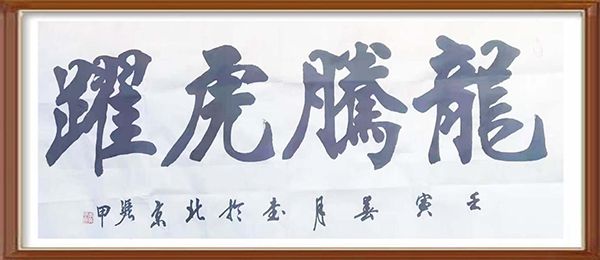 龍騰虎躍
壬寅春月書於北京張甲